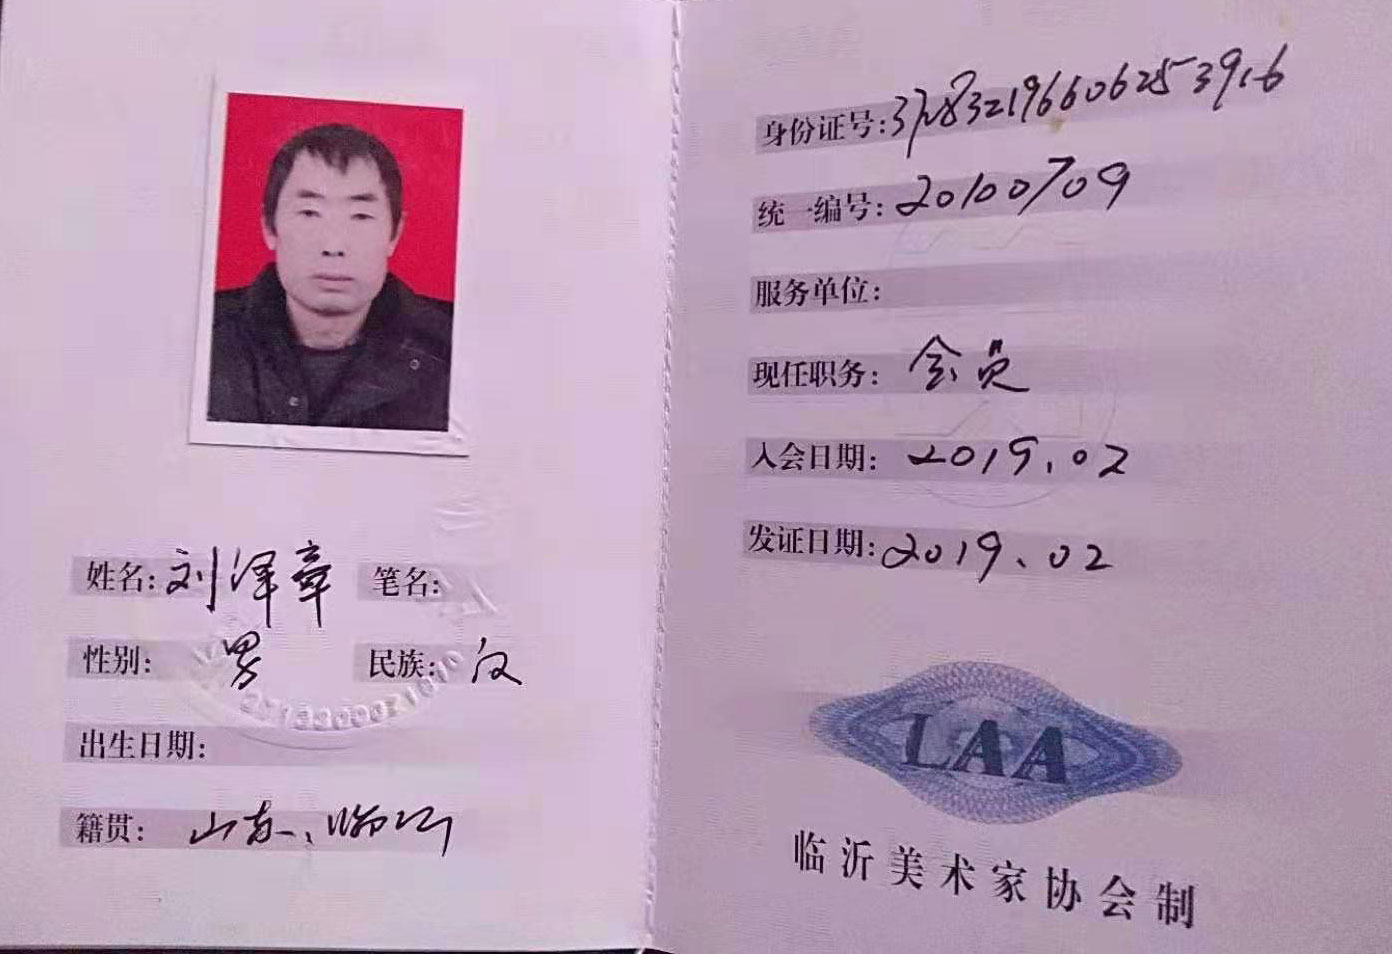 姓名: 刘泽章 笔名:
性别: 男 民族: 汉
出生日期:
籍贯: 山东、临沂
身份证号: 372832196606253916
统一编号: 20100709
服务单位:
现任职务: 会员
入会日期: 2019.02
发证日期: 2019.02
LAA
临沂美术家协会制